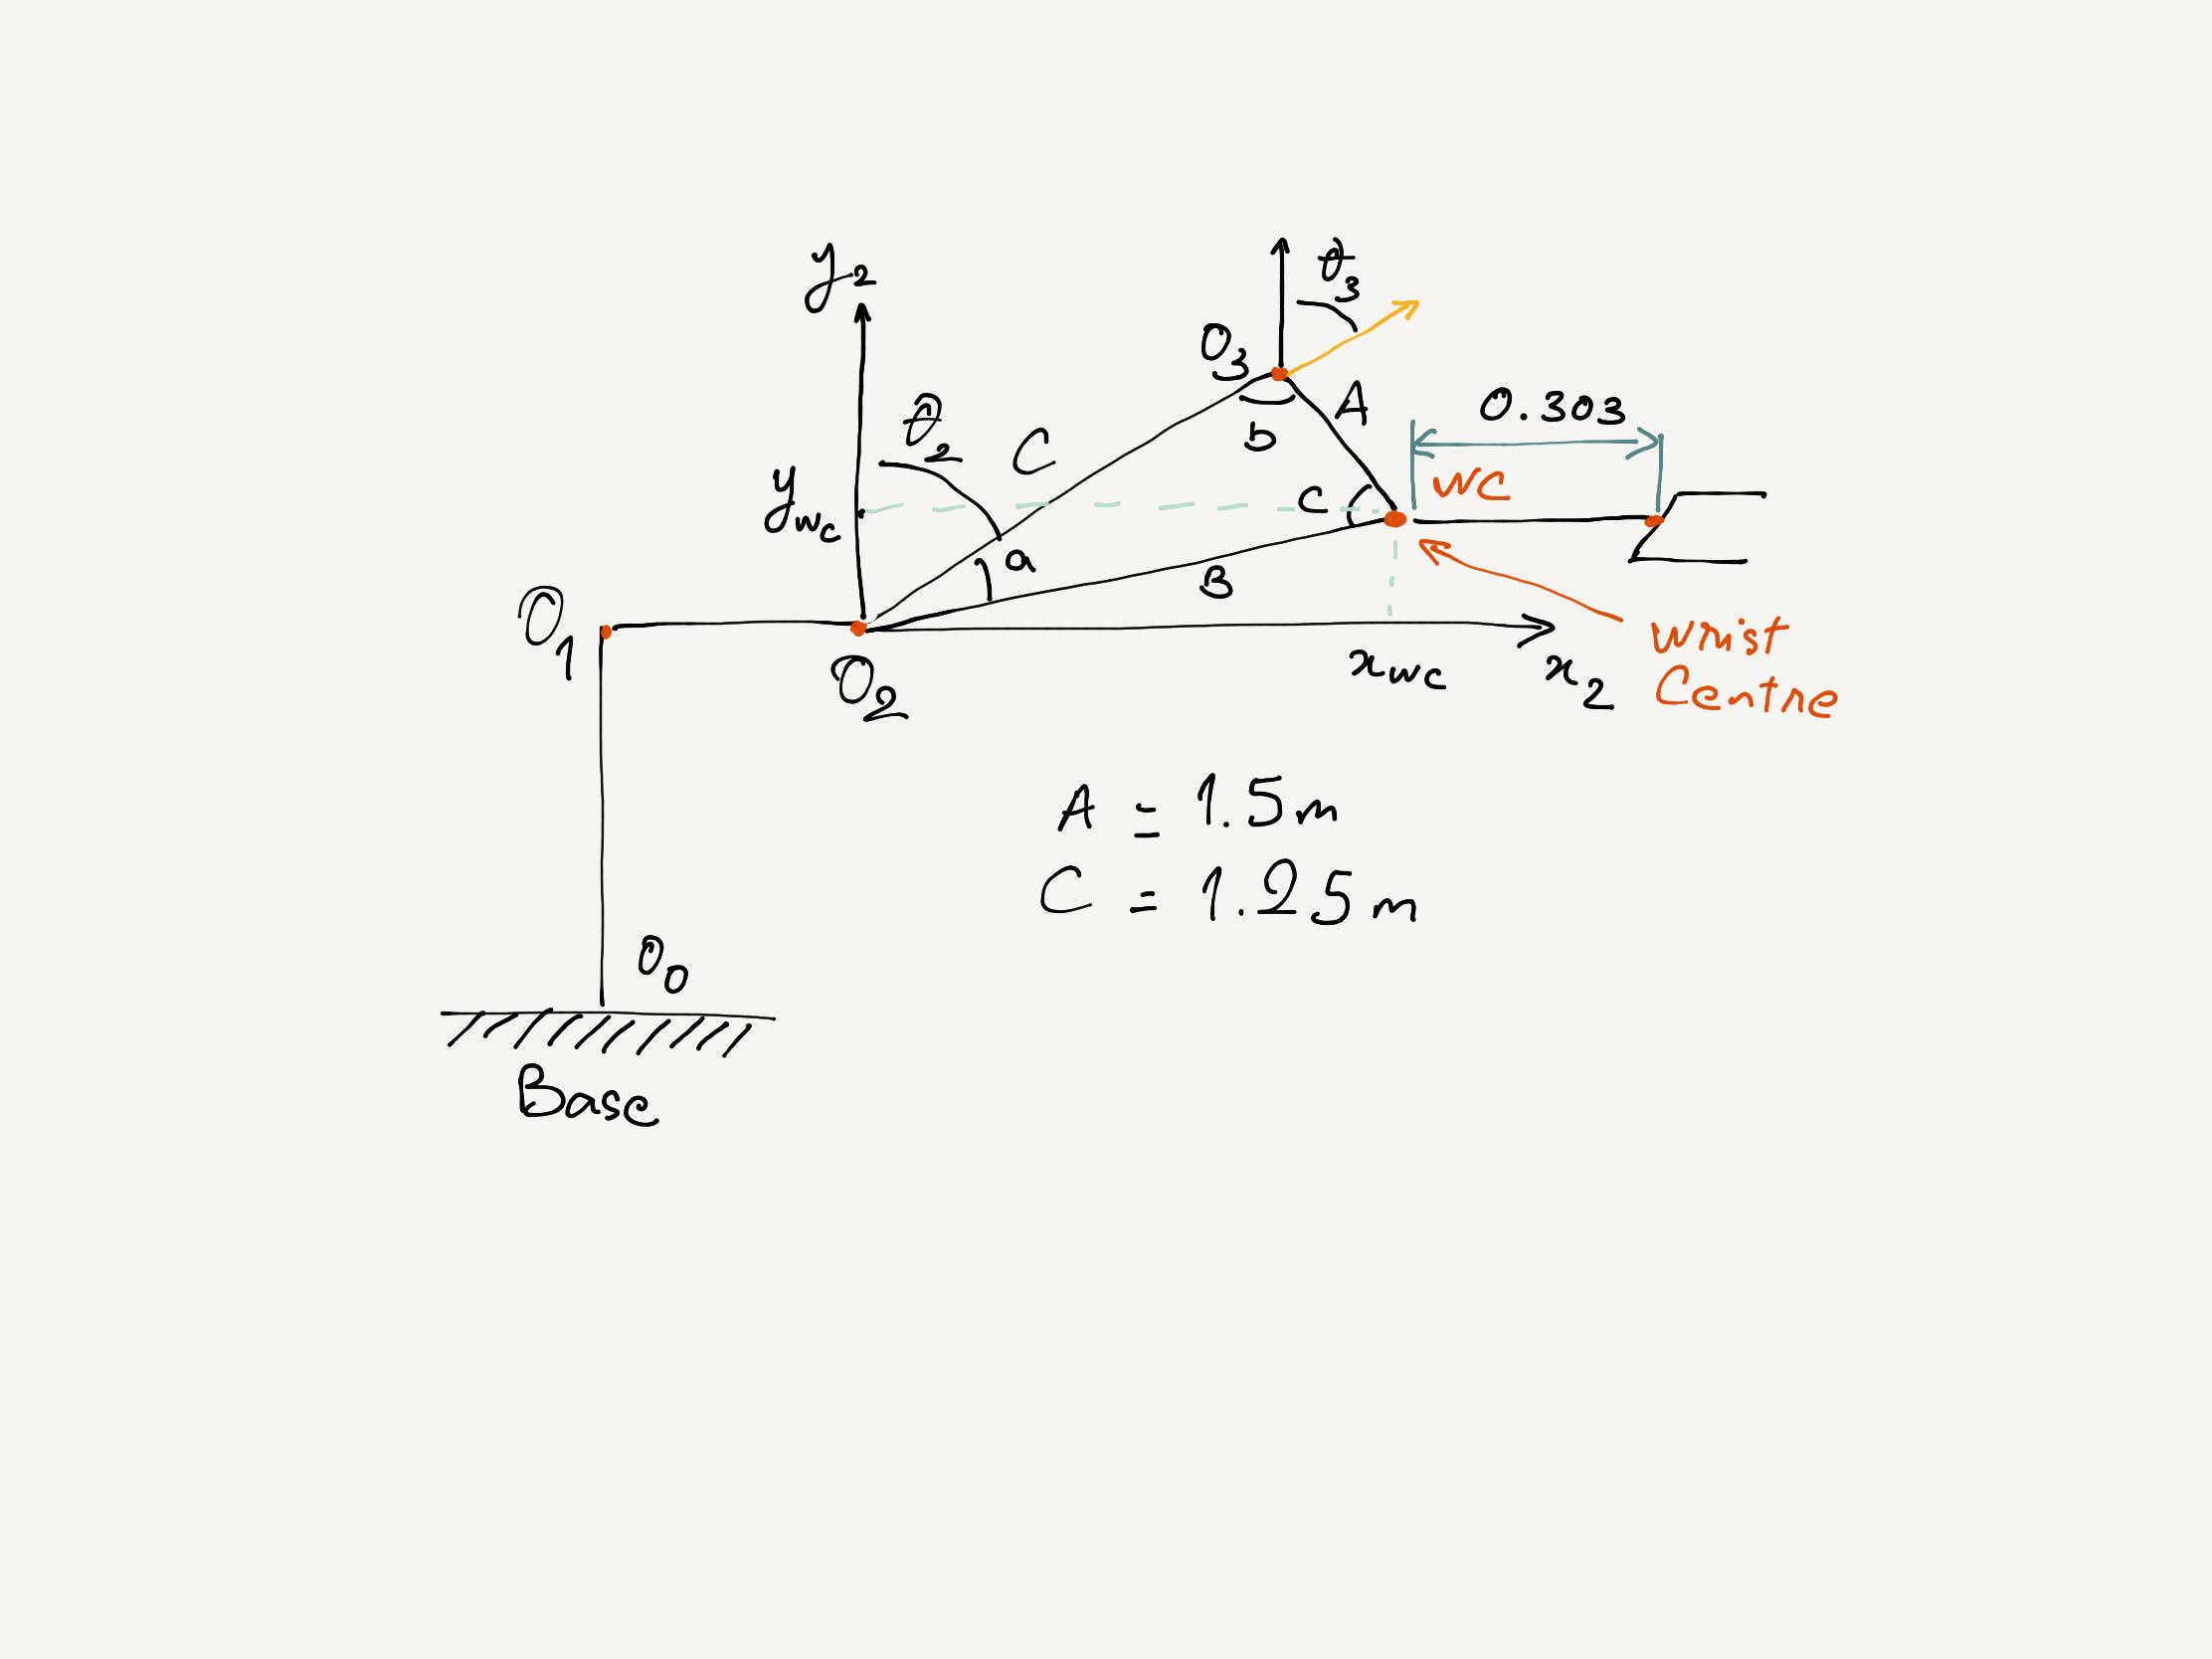 y₂
θ₃
O₃
θ₂
C
A
0.303
b
y_wc
c
WC
a
B
O₁
O₂
x_wc
x₂
Wrist
Centre
A = 1.5m
C = 1.25m
O₀
Base